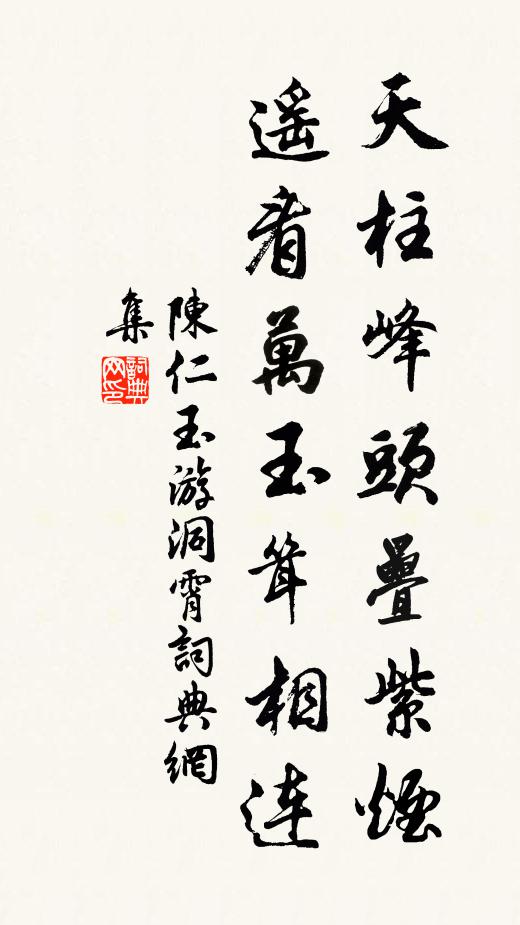 天柱峰頭疊紫煙
遥看萬玉耸相連
陳仁玉游洞霄詞典網
集
詞典
网印